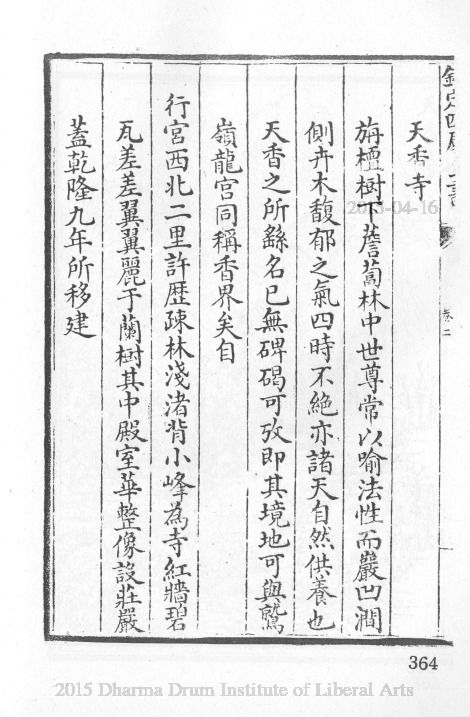 欽定四庫全書
卷二
天香寺
旃檀樹下薝蔔林中世尊常以喻法性而嚴凹澗
側卉木馥郁之氣四時不絶亦諸天自然供養也
天香之所繇名已無碑碣可攷即其境地可與鷲
嶺龍宫同稱香界矣自
行宫西北二里許歴疎林淺渚背小峰為寺紅牆碧
瓦差差翼翼麗于蘭樹其中殿室華整像設莊嚴
蓋乾隆九年所移建
2015-04-16
364
2015 Dharma Drum Institute of Liberal Arts